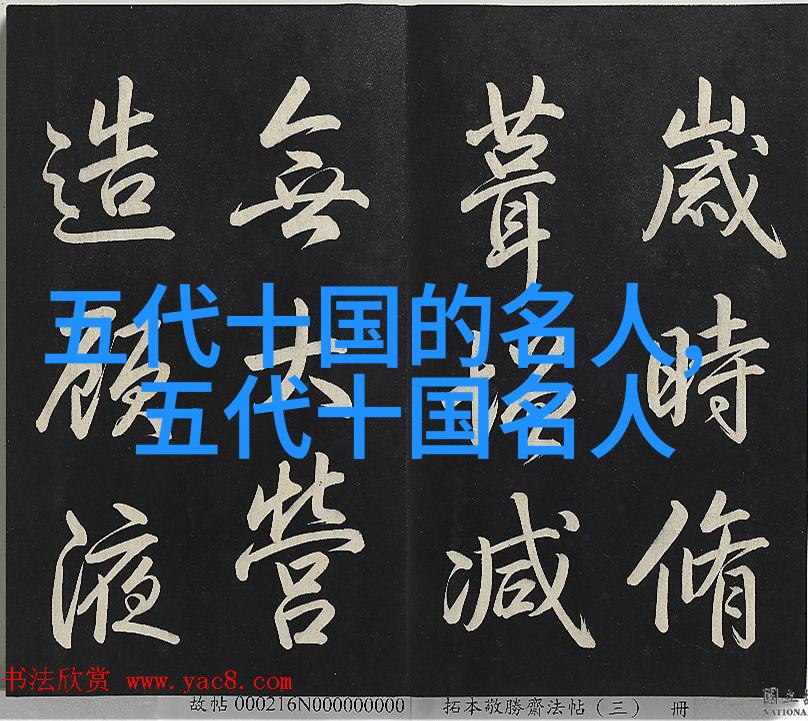 歲時脩
葺減
無大營
造顧液
五代十国的名人,
五代十国名人
书法欣赏 www.yac8.com
故帖 000216N000000000 拓本敬勝齋法帖（三） 冊
國立
NATIONA